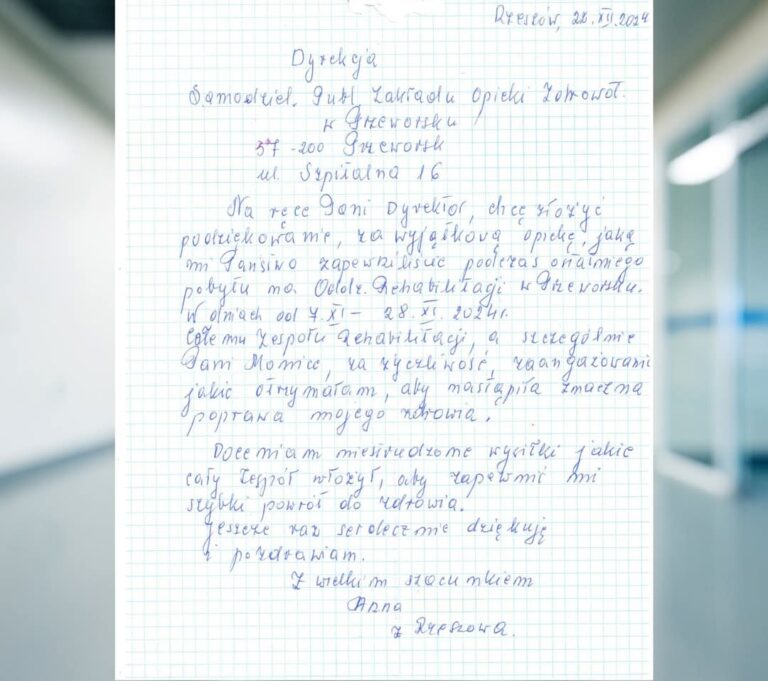 Rzeszów, 22.XII.2024
Dyrekcja
Samodziel. Publ. Zakładu Opieki Zdrowot.
w Przeworsku
37-200 Przeworsk
ul. Szpitalna 16
Na ręce Pani Dyrektor, chcę złożyć
podziękowanie, za wyjątkową opiekę, jaką
mi Państwo zapewniliście podczas ostatniego
pobytu na Oddz. Rehabilitacji w Przeworsku.
W dniach od 7.XI – 28.XI.2024r.
Całemu Zespołu Rehabilitacji, a szczególnie
Pani Monice, za życzliwość, zaangażowanie
jakie otrzymałam, aby nastąpiła znaczna
poprawa mojego zdrowia.
Doceniam niestrudzone wysiłki jakie
cały Zespół włożył, aby zapewnić mi
szybki powrót do zdrowia.
Jeszcze raz serdecznie dziękuję
i pozdrawiam.
Z wielkim szacunkiem
Anna
z Rzeszowa.